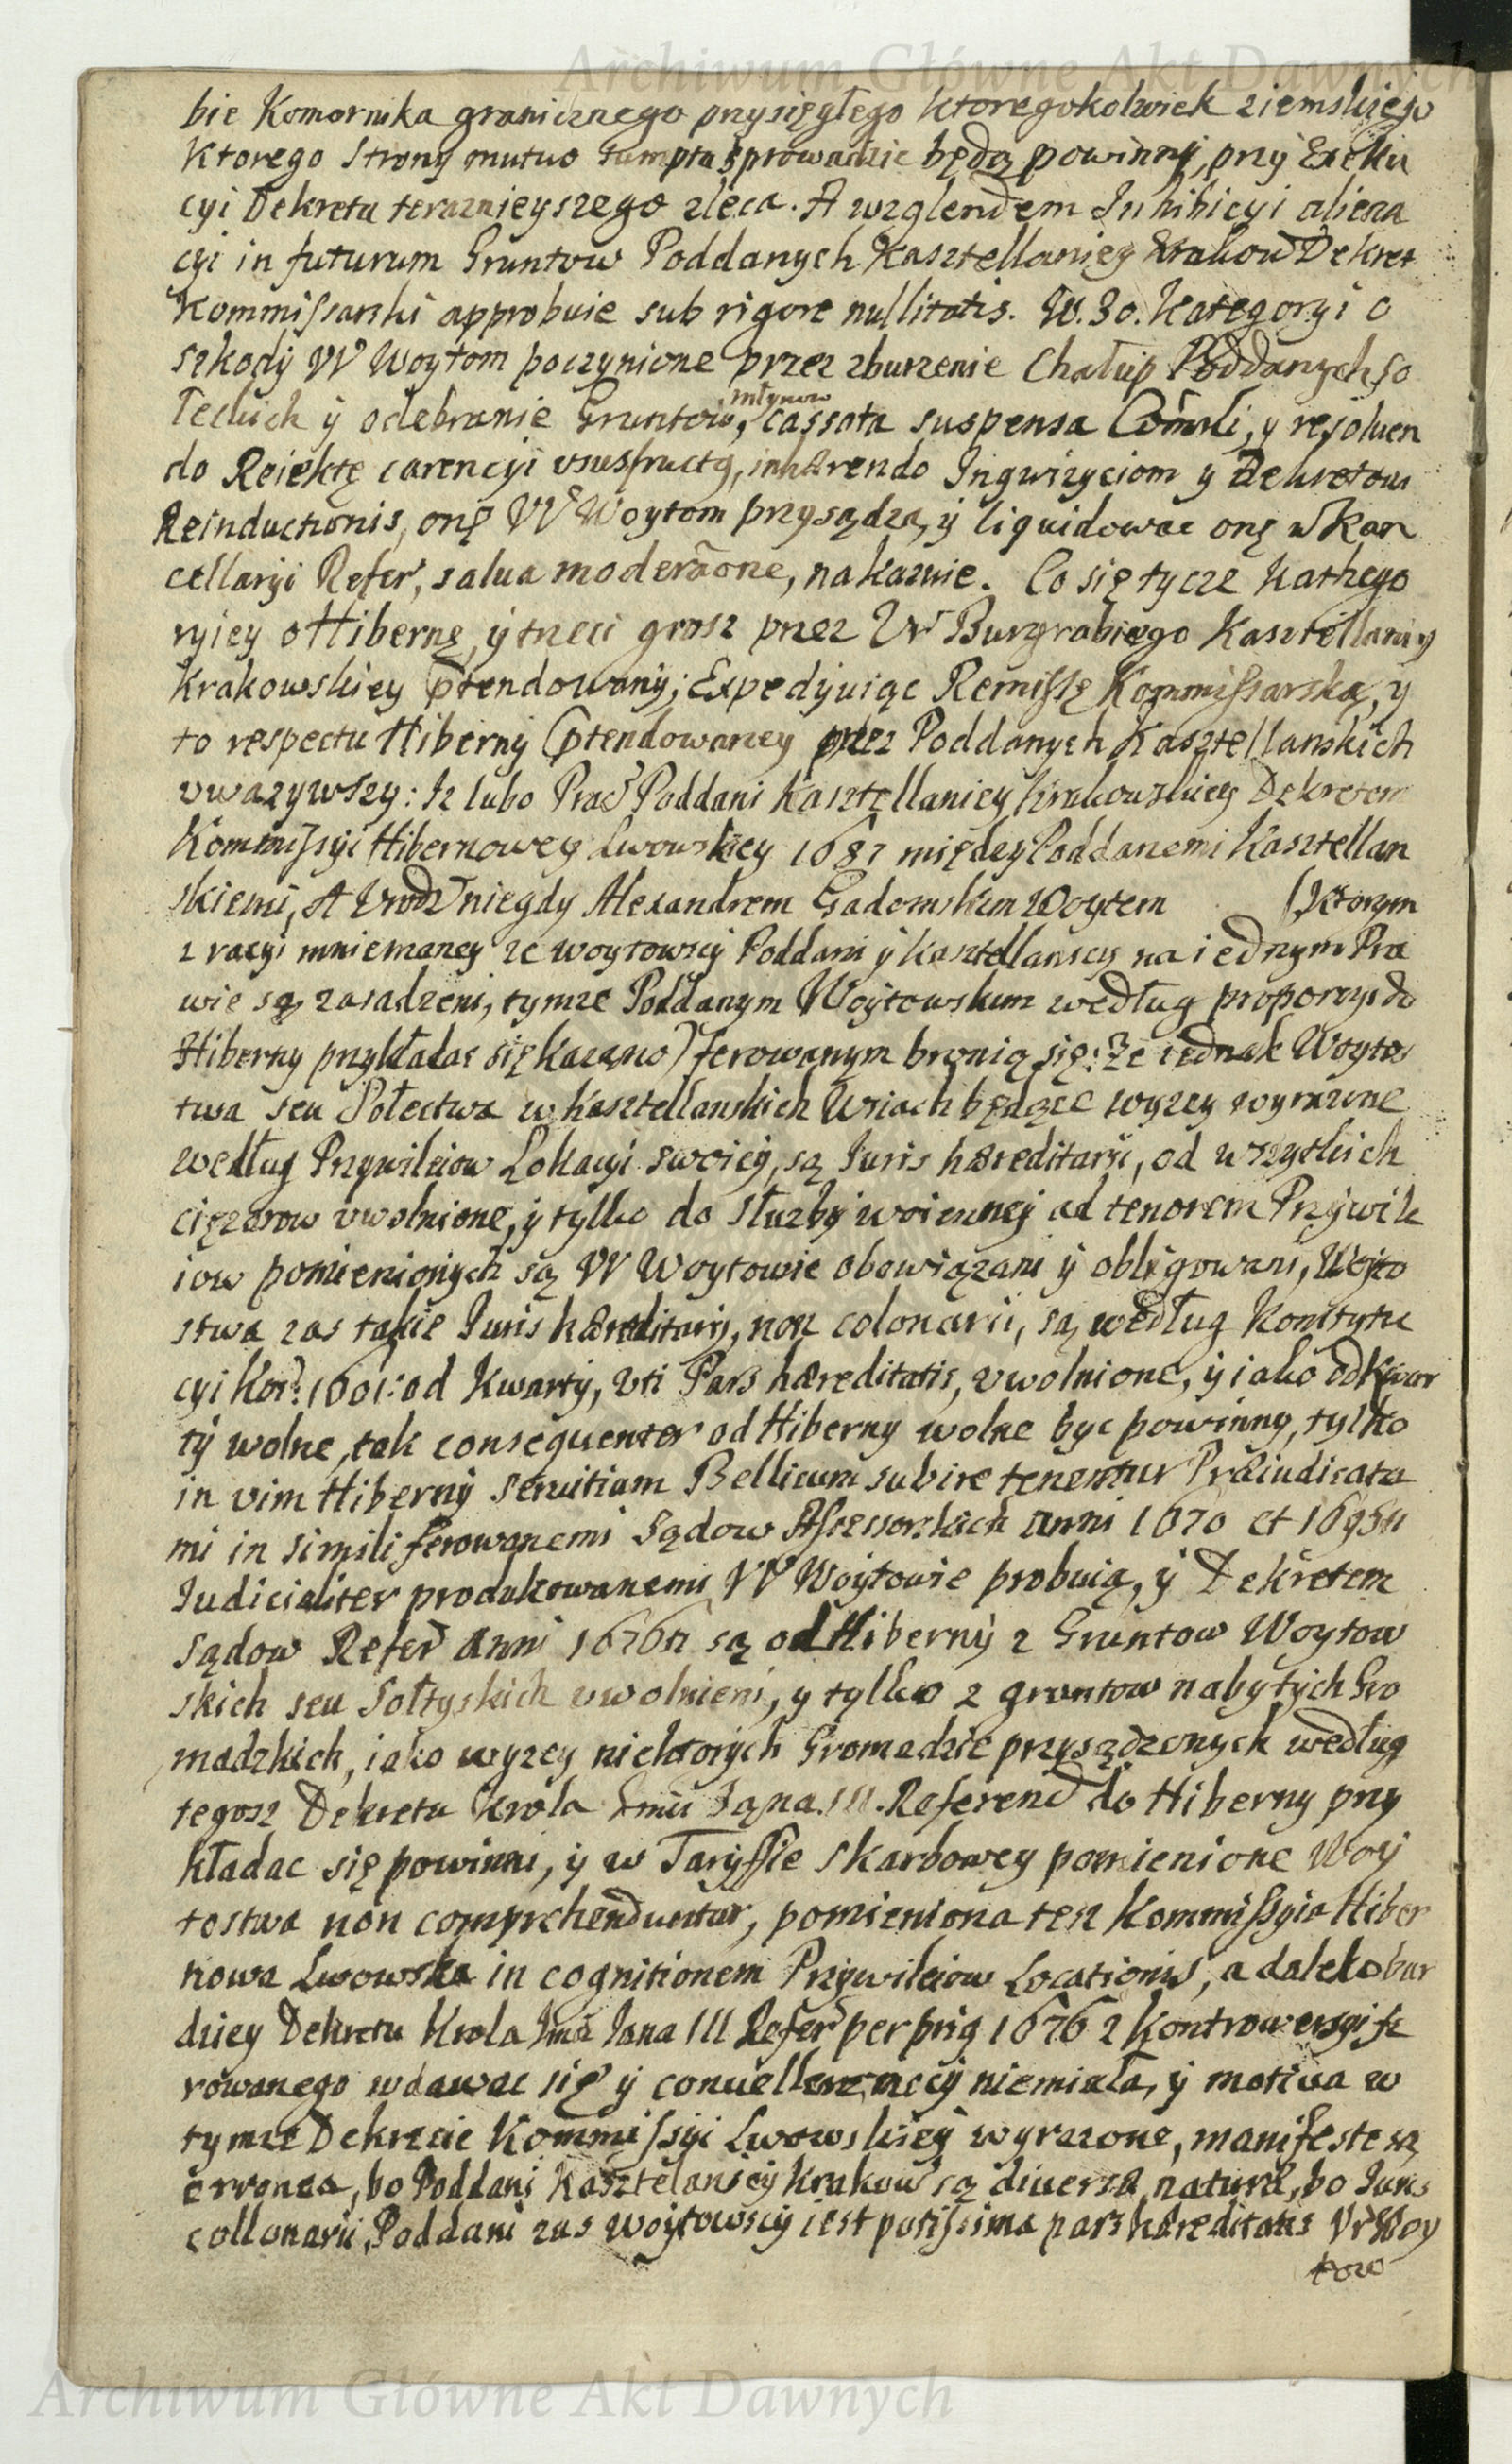 Archiwum Główne Akt Dawnych
bie Komornika granicznego przysięgłego ktoregokolwiek ziemskiego
ktorego Strony mutuo sumptu sprowadzic będą powinny, przy Exeku
cyi Dekretu teraznieyszego zleca. A wzglendem Inhibicyi aliena
cyi in futurum Gruntow Poddanych Kasztellaniey Krakow Dekret
Kommissarski approbuie sub rigore nullitatis. W. 3o. Kategoryi o
szkody W Woytom poczynione przez zburzenie Chałup Poddanych so
łeckich y odebranie Gruntow, młynow cassata suspensa Comsli, y resoluen
do Reiektę carencyi vsusfructq, inhærendo Inqwizyciom y Dekretowi
Reinductionis, onę W Woytom przysądza, y liquidowac onę w Kan
cellaryi Refer, salua moderãone, nakazuie. Co się tycze Kathego
ryiey o Hibernę, y trzeci grosz przez Ur Burgrabiego Kasztellaniy
Krakowskiey ptendowany; Expedyuiąc Remissę Kommissarską, y
to respectu Hiberny ptendowaney przez Poddanych Kasztellanskich
vwazywszy: Iz lubo Prac Poddani Kasztellaniey Krakowskiey Dekretem
Kommissyi Hibernowey Lwowskiey 1687 między Poddanemi Kasztellan
skiemi, A Urodz niegdy Alexandrem Gadomskim Woytem (ktorym
z racyi mniemaney ze woytowscy Poddani y kasztellanscy na iednym Pra
wie są zasadzeni, tymze Poddanym Woytowskim według proporcyi do
Hiberny przykładac się kazano) ferowanym bronią się: Ze iednak Woyto
twa seu Sołectwa w Kasztellanskich Wsiach będące wyzey wyrazone
według Przywileiow Lokacyi swoiey, są Iuris hæreditarii, od wszytkich
ciężarow vwolnione, y tylko do służby woienney ad tenorem Przywile
iow pomienionych są W Woytowie obowiązani y obligowani, Woyto
stwa zas takie Iuris hæreditarij, non colonarii, są według Konstytu
cyi Kor: 1601: od Kwarty, vti Pars hæreditatis, vwolnione, y iako od kwar
ty wolne, tak consequenter od Hiberny wolne byc powinny, tylko
in vim Hiberny seruitium Bellicum subire tenentur Præiudicata
mi in simili ferowanemi Sądow Assessorskich Anni 1670 et 1695ti
Iudicialiter produkowanemi W Woytowie probuią, y Dekretem
Sądow Refer Anni 1676ti są od Hiberny z Gruntow Woytow
skich seu Sołtyskich vwolnieni, y tylko z gruntow nabytych Gro
madzkich, iako wyzey niektorych Gromadzie przysądzonych według
tegosz Dekretu Krola Jmci Jana. III. Referend do Hiberny przy
kładac się powinni, y w Taryffie Skarbowey pomienione Woy
tostwa non comprehenduntur, pomieniona tesz Kommissyia Hiber
nowa Lwowska in cognitionem Przywileiow Locationis, a daleko bar
dziey Dekretu Krola Jmci Iana III Refer per png 1676 z Kontrowersyi fe
rowanego wdawac się y conuellere mocy niemiała, y motiua w
tymze Dekrecie Kommissyi Lwowskiey wyrazone, manifeste są
erronea, bo Poddani Kasztelaniey Krakow są diuersæ naturæ, bo Iuris
collonarii, Poddani zas woytowscy iest potissima pars hæreditatis Ur Woy
tow
Archiwum Główne Akt Dawnych